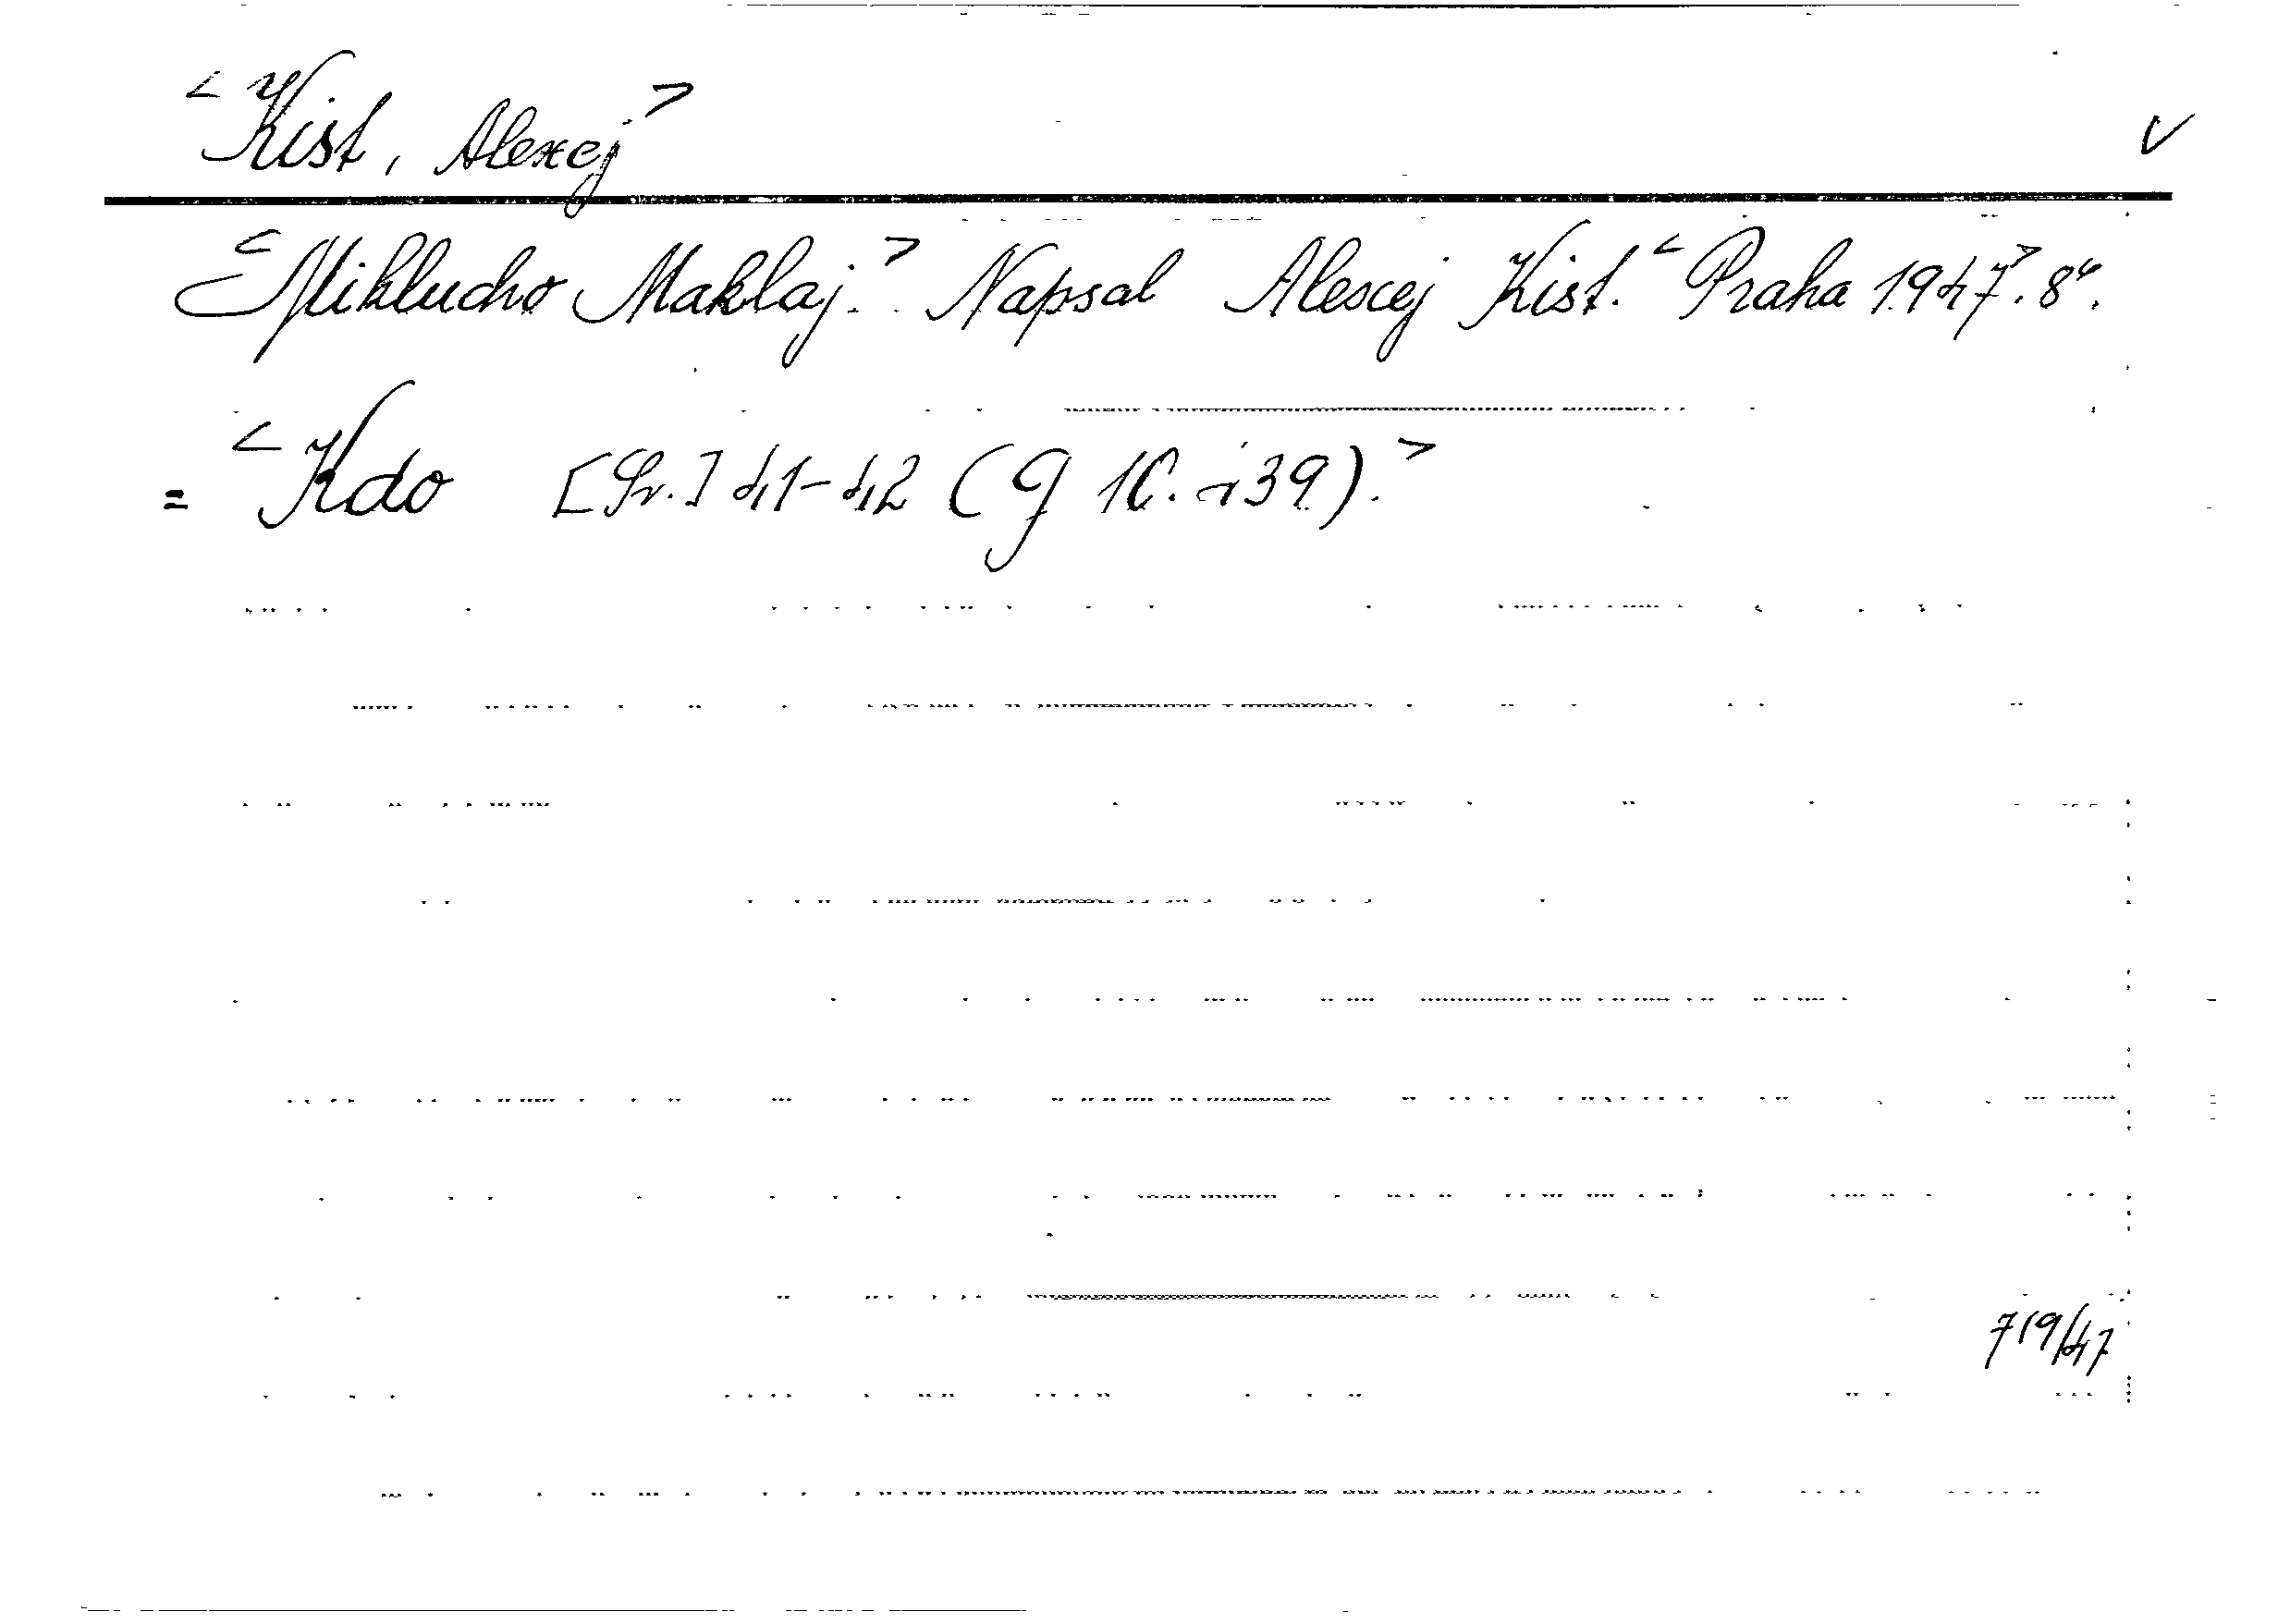 <Kist, Alexej> V
<Miklucho Maklaj.> Napsal Alexej Kist. <Praha 1947>. 8°.
= <Kdo [Sv.] 41-42 (9 1C. i39).>
719/47